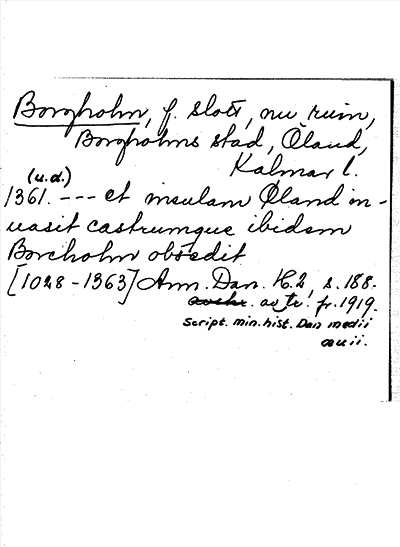 Borgholm, f. slott, nu ruin,
Borgholms stad, Öland,
Kalmar l.
(u.d.)
1361. --- et insulam Øland in-
uasit castrumque ibidem
Borcholm obsedit
[1028-1363] Ann. Dan. H.2, s.188.
av tr. fr. 1919.
Script. min. hist. Dan medii
æuii.